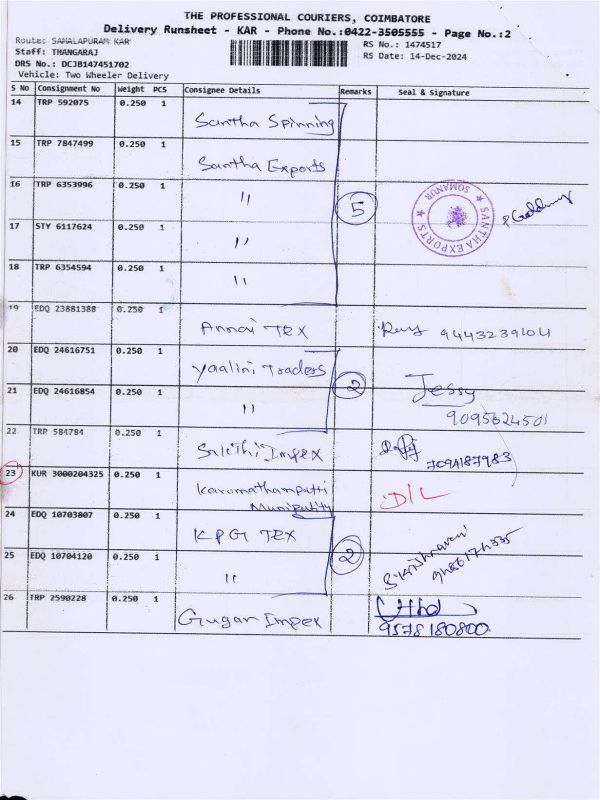 THE PROFESSIONAL COURIERS, COIMBATORE
Delivery Runsheet - KAR - Phone No.:0422-3505555 - Page No.:2
Route: SAMALAPURAM KAR
RS No.: 1474517
Staff: THANGARAJ
RS Date: 14-Dec-2024
DRS No.: DCJB147451702
Vehicle: Two Wheeler Delivery
S No Consignment No Weight PCS Consignee Details Remarks Seal & Signature
14 TRP 592075 0.250 1 Santha Spinning
15 TRP 7847499 0.250 1 Santha Exports
16 TRP 6353996 0.250 1 "
5
SANTHA EXPORTS ★ SOMANUR ★
17 STY 6117624 0.250 1 "
18 TRP 6354594 0.250 1 "
19 EDQ 23881388 0.250 1 Annai Tex 9443239104
20 EDQ 24616751 0.250 1 Yaalini Traders
2
Jessy
21 EDQ 24616854 0.250 1 "
9095624501
22 TRP 584784 0.250 1 Impex
7094187983
23 KUR 3000204325 0.250 1 Karumathampatti D/L
24 EDQ 10703807 0.250 1 KPG TEX
2
25 EDQ 10704120 0.250 1 "
26 TRP 2590228 0.250 1 Gugan Impex
9578180800